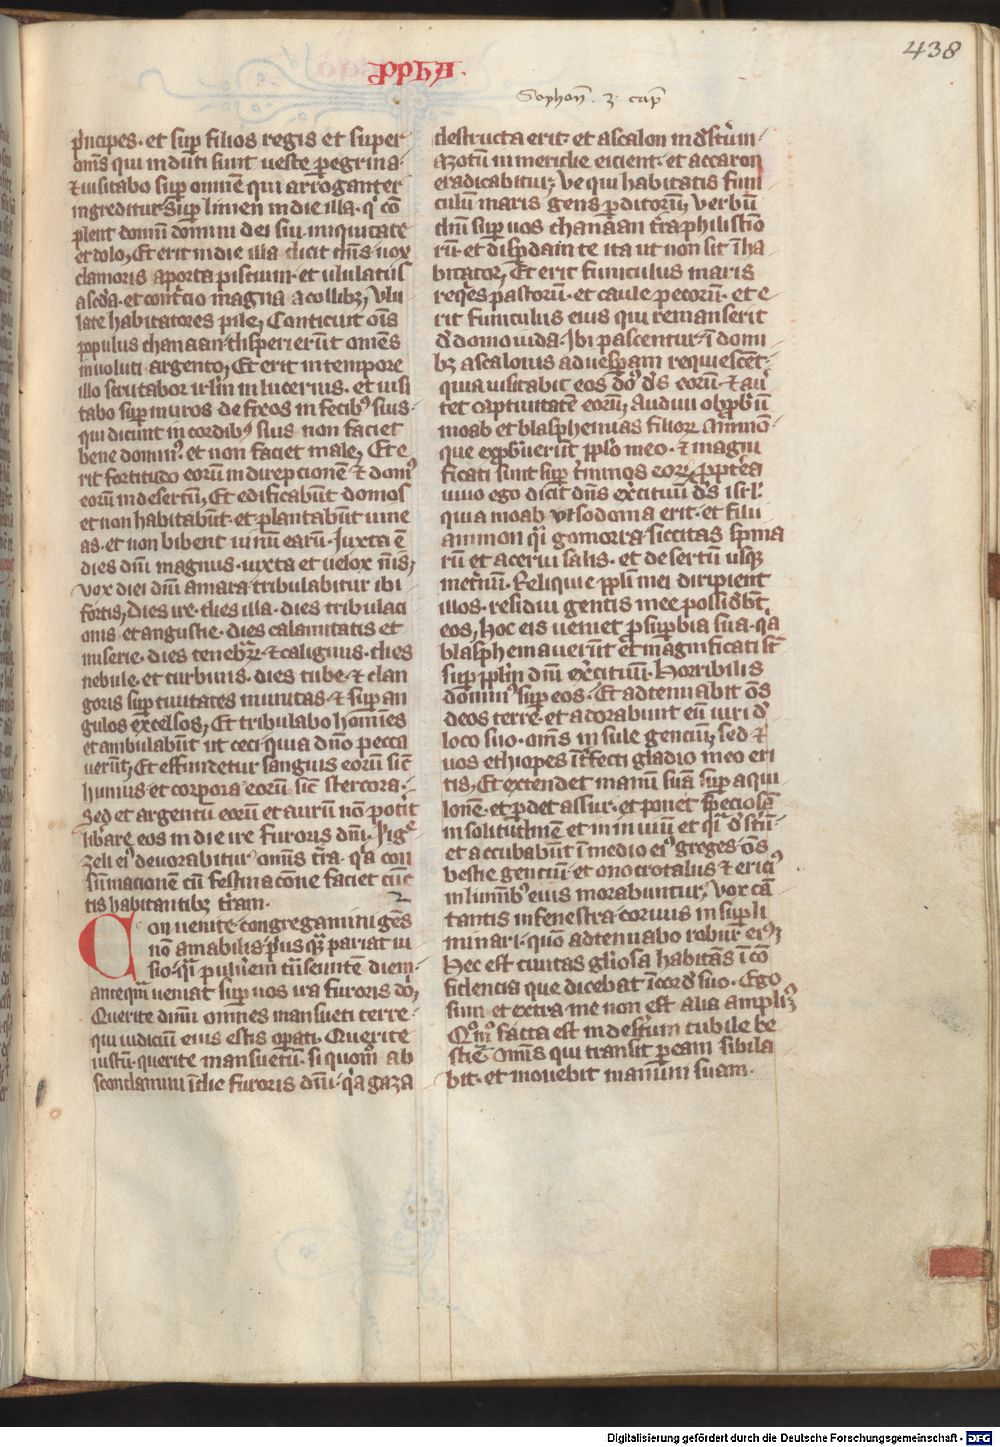 438
ppha.
Sophon̄. 3 cap̄
p̾ncipes. et sup̲ filios regis et super
om̄s qui induti sunt ueste p̲egrina.
⁊ uisitabo sup̲ omnē qui arroganter
ingreditur sup̲ limen in die illa. q̾ cō
plent domū domini dei sui iniquitate
et dolo, Et erit in die illa dicit dn̄s uox
clamoris a porta pisciuni. et ululatus
a scd̾a. et cont̾cio magna a collibꝫ, Vlu
late habitatores pile, Conticuit om̄s
ppulus chanaan. disperierūt omēs
inuoluti argento, Et erit in tempore
illo scrutabor irl̄m in lucernis. et uisi
tabo sup̲ muros defixos in fecibꝰ suis.
qui dicunt in cordibꝰ suis non faciet
bene dominꝰ. et non faciet male, Et e
rit fortitudo eorū in direpcionē ⁊ domꝰ
eorū in desertū, Et edificabūt domos
et non habitabūt. et plantabūt uine
as. et non bibent uinū earū. Juxta ē
dies dn̄i magnus. iuxta et uelox nīs,
vox diei dn̄i amara tribulabitur ibi
fortis, dies ire dies illa. dies tribulaci
onis et angustie. dies calamitatis et
miserie. dies tenebꝝ. ⁊ caliginis. dies
nebule. et turbinis. dies tube. ⁊ clan
goris sup̲ ciuitates munitas. ⁊ sup̲ an
gulos excelsos, Et tribulabo homines
et ambulabūt ut ceci quia dn̄o pecca
uerūt, Et effundetur sanguis eorū sic̄
humus. et corpora eorū sic̄ stercora.
Sed et argentū eorū et aurū non pot̾it
lib̾are eos in die ire furoris dn̄i. Jig̾
zeli eiꝰ deuorabitur omnis t̾ra. q̾a con
sūmacionē cū festinacōne faciet cūc
tis habitantibꝫ t̾ram. 2
Conuenite congregamini gēs
nō amabilis p̾us qꝫ pariat iu
sio. q̄i puluerem t̾nseuntē diem.
anteqꝫ ueniat sup̲ uos ira furoris dn̄i,
Querite dn̄m omnes mansueti terre
qui iudiciū eius estis op̲ati. Querite
iustū. querite mansuetū. si quom̄ ab
scondamini ī die furoris dn̄i. q̾a gaza
destructa erit. et ascalon in d̾s̄tum
azotū in meridie eicient. et accaron
eradicabitur, Ve qui habitatis funi
culū maris gens p̲ditorū, verbū
dn̄i sup̲ uos chanaan t̾ra philistio
rū. et disp̲dam te ita ut non sit īha
bitator, Et erit funiculus maris
req̾es pastorū. et caule pecorū. et e
rit funiculus eius qui remanserit
d̾ domo iuda. Ibi pascentur. ī domi
bꝫ ascalonis ad uesp̲am requiescēt.
quia uisitabit eos dn̄s d̾s eorū. ⁊ au̾
tet captiuitatē eorū, Audiui obp̲briū
moab et blasphemias filioꝝ ammon.
que exp̲b̾uerūt pp̄lo meo. ⁊ magni
ficati sunt sup̲ t̾minos eoꝝ. p̲pterea
uiuo ego dicit dn̄s ex̾cituū d̾s isrl̄.
quia moab ut sodoma erit. et filii
ammon q̄i gomorra. siccitas spina
rū et acerui salis. et desertū usqꝫ
inet̾nū. Reliquie pp̄li mei diripient
illos. residui gentis mee possidebūt
eos, hoc eis ueniet p̲ sup̲bia sua. q̾a
blasphemauerūt et magnificati st̄
sup̲ pp̄lm dn̄i ex̾cituū. Horribilis
dominꝰ sup̲ eos. Et adtenuabit ōs
deos terre. et adorabunt eū uiri d̾
loco suo. om̄s insule genciū, sed ⁊
uos ethiopes int̾fecti gladio meo eri
tis, Et extendet manū suā sup̲ aqui
lonē. et p̲det assur. et ponet speciosā
in solitudinē et in inuiū et q̄i d̾s̄tū.
et accubabūt ī medio eiꝰ greges. ōs
bestie genciū. et onocrotalus ⁊ ericiꝰ
in liminibꝰ eius morabuntur, Vox cā
tantis in fenestra. coruus in sup̲li
minari. quō adtenuabo robur eiꝰ,
Hec est ciuitas gl̄iosa habitās ī cō
fidencia que dicebat ī cord̾ suo. Ego
sum et extra me non est alia ampliꝰ,
Quom̄ facta est in des̾tum cubile be
stie. Om̄s qui transit p̲ eam sibila
bit. et mouebit manum suam.
Digitalisierung gefördert durch die Deutsche Forschungsgemeinschaft - DFG